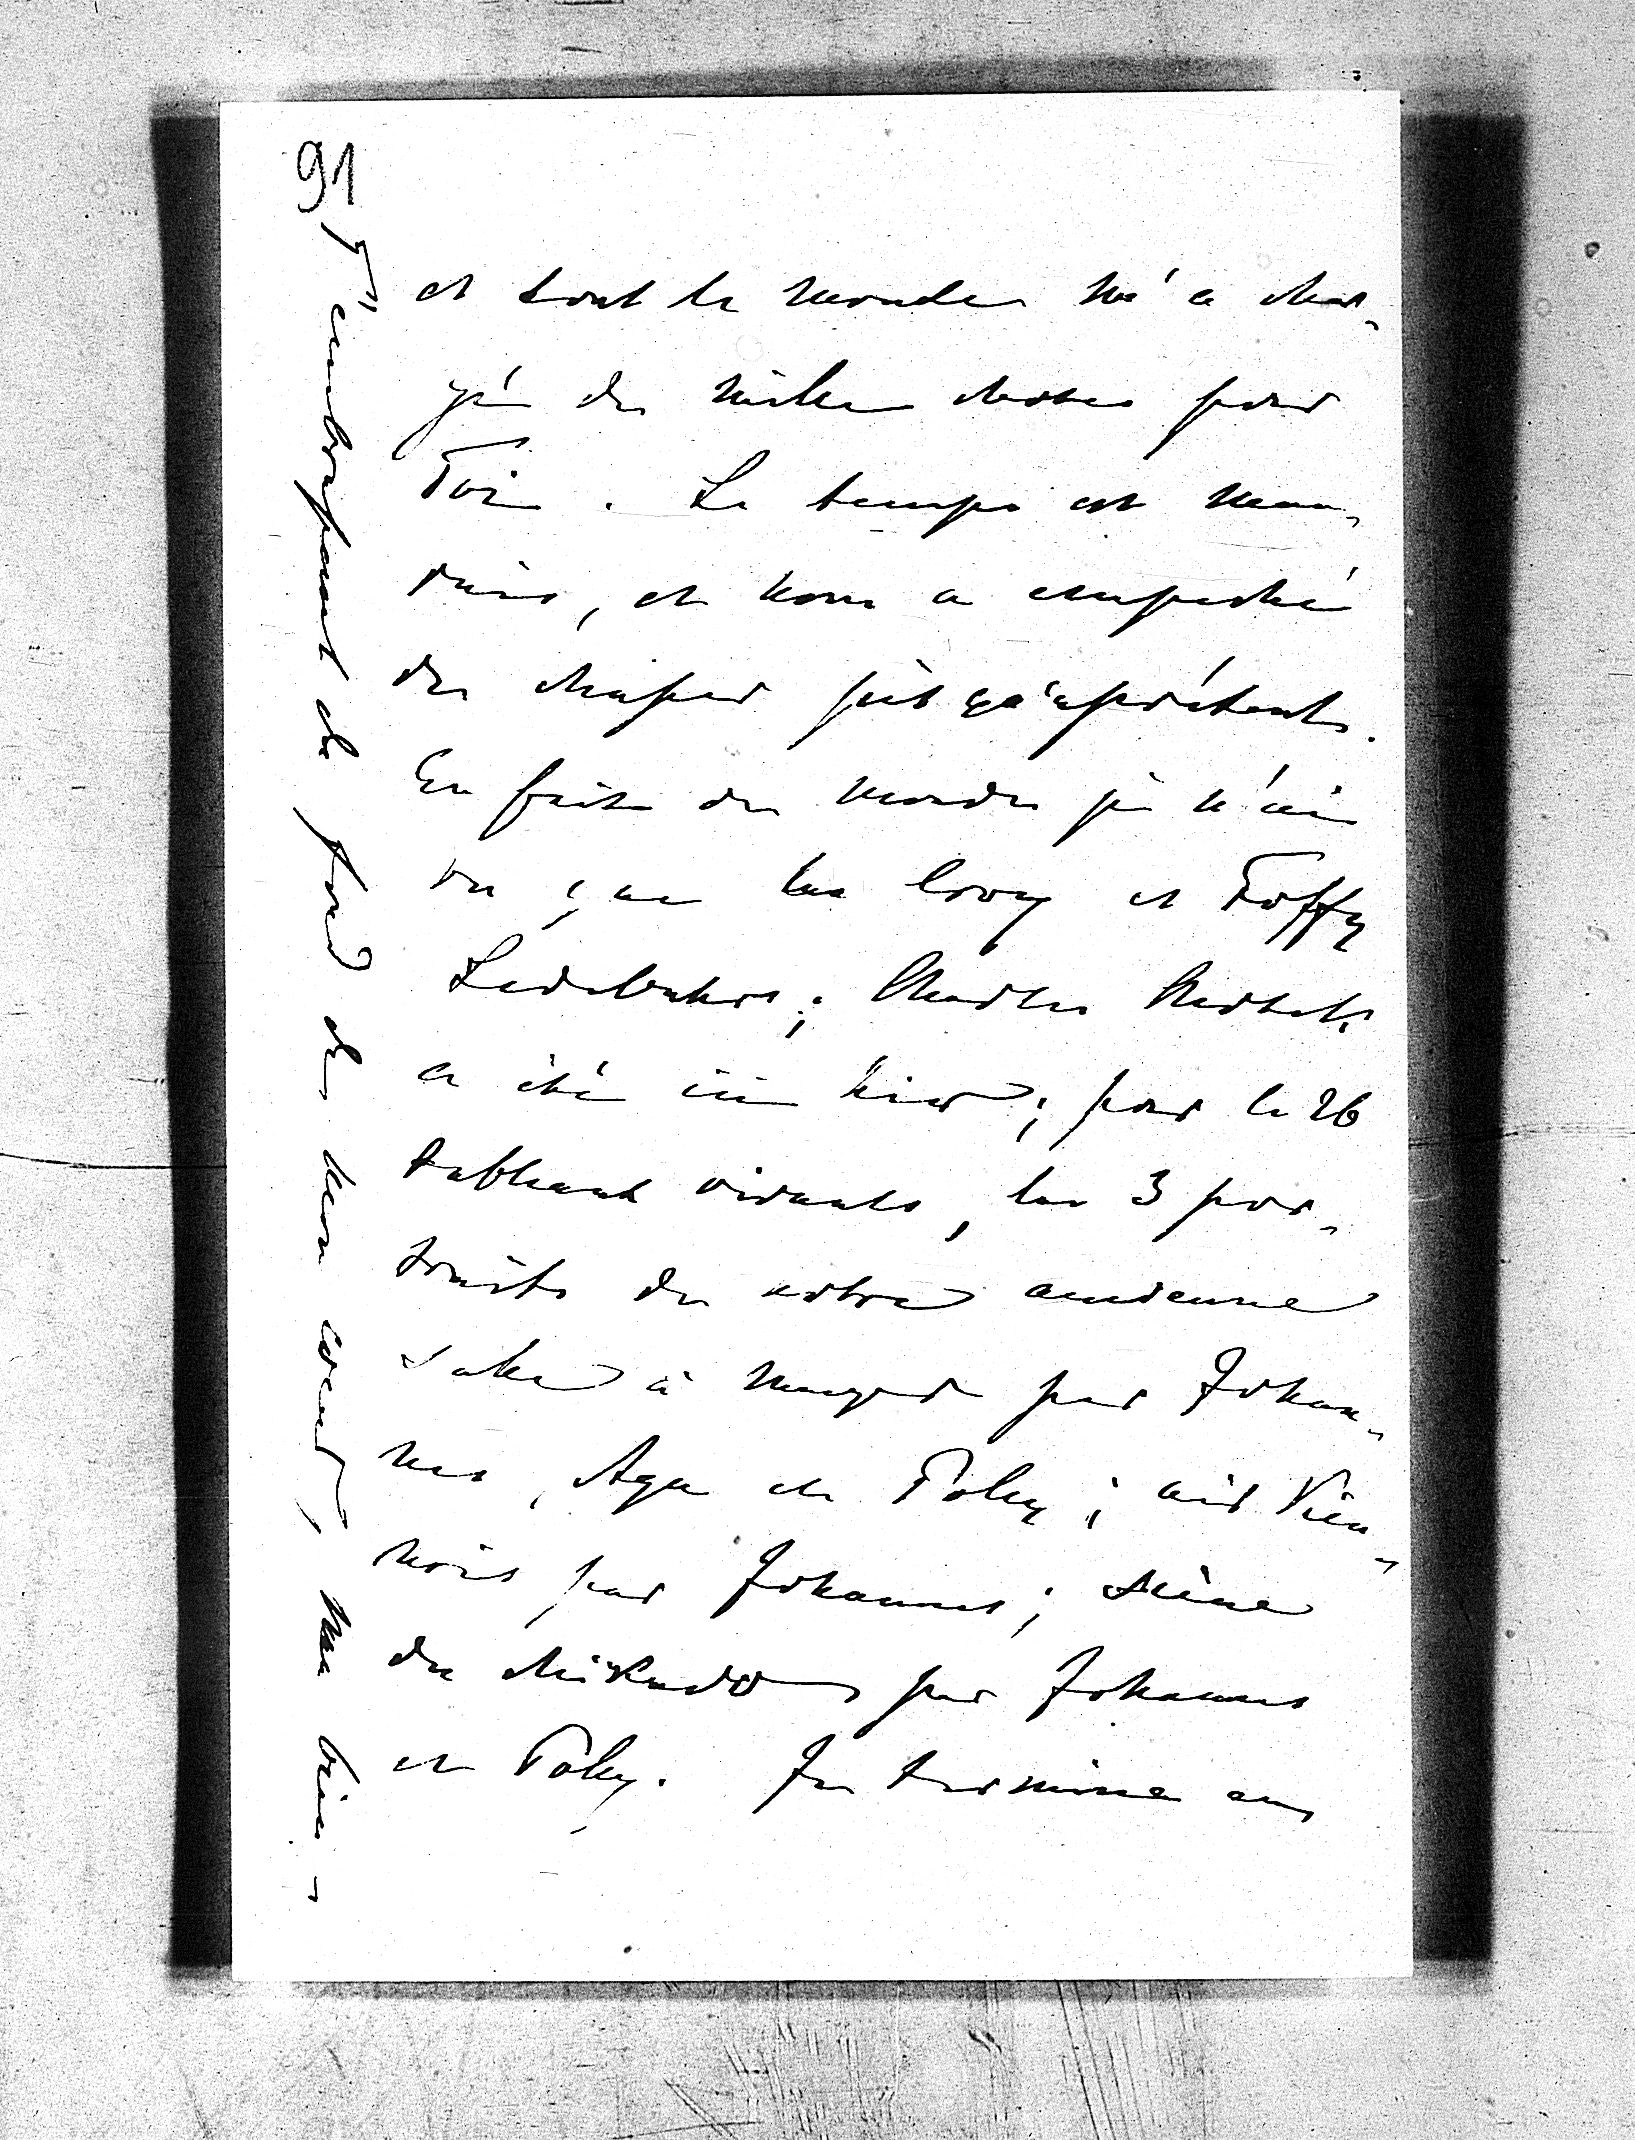 91
et tout le monde m'a char-
gé de mille choses pour
Toi. Le temps est mau-
vais, et nous a empeché
de chasser jusqu'aprésent.
En fait de monde je n'ai
vu que les Croy et Foffy
Ledebuhrs; Charles
a été ici hier; pour le 26
tableaux vivants, les 3 por-
traits de notre ancienne
salle à manger par Johan-
nes, Aga et Poley; air Vien-
nois par Johannes; scène
du Mikado par Johannes
et Poley. Je termine en
T'embrassant du fond de mon coeur, ma bien-